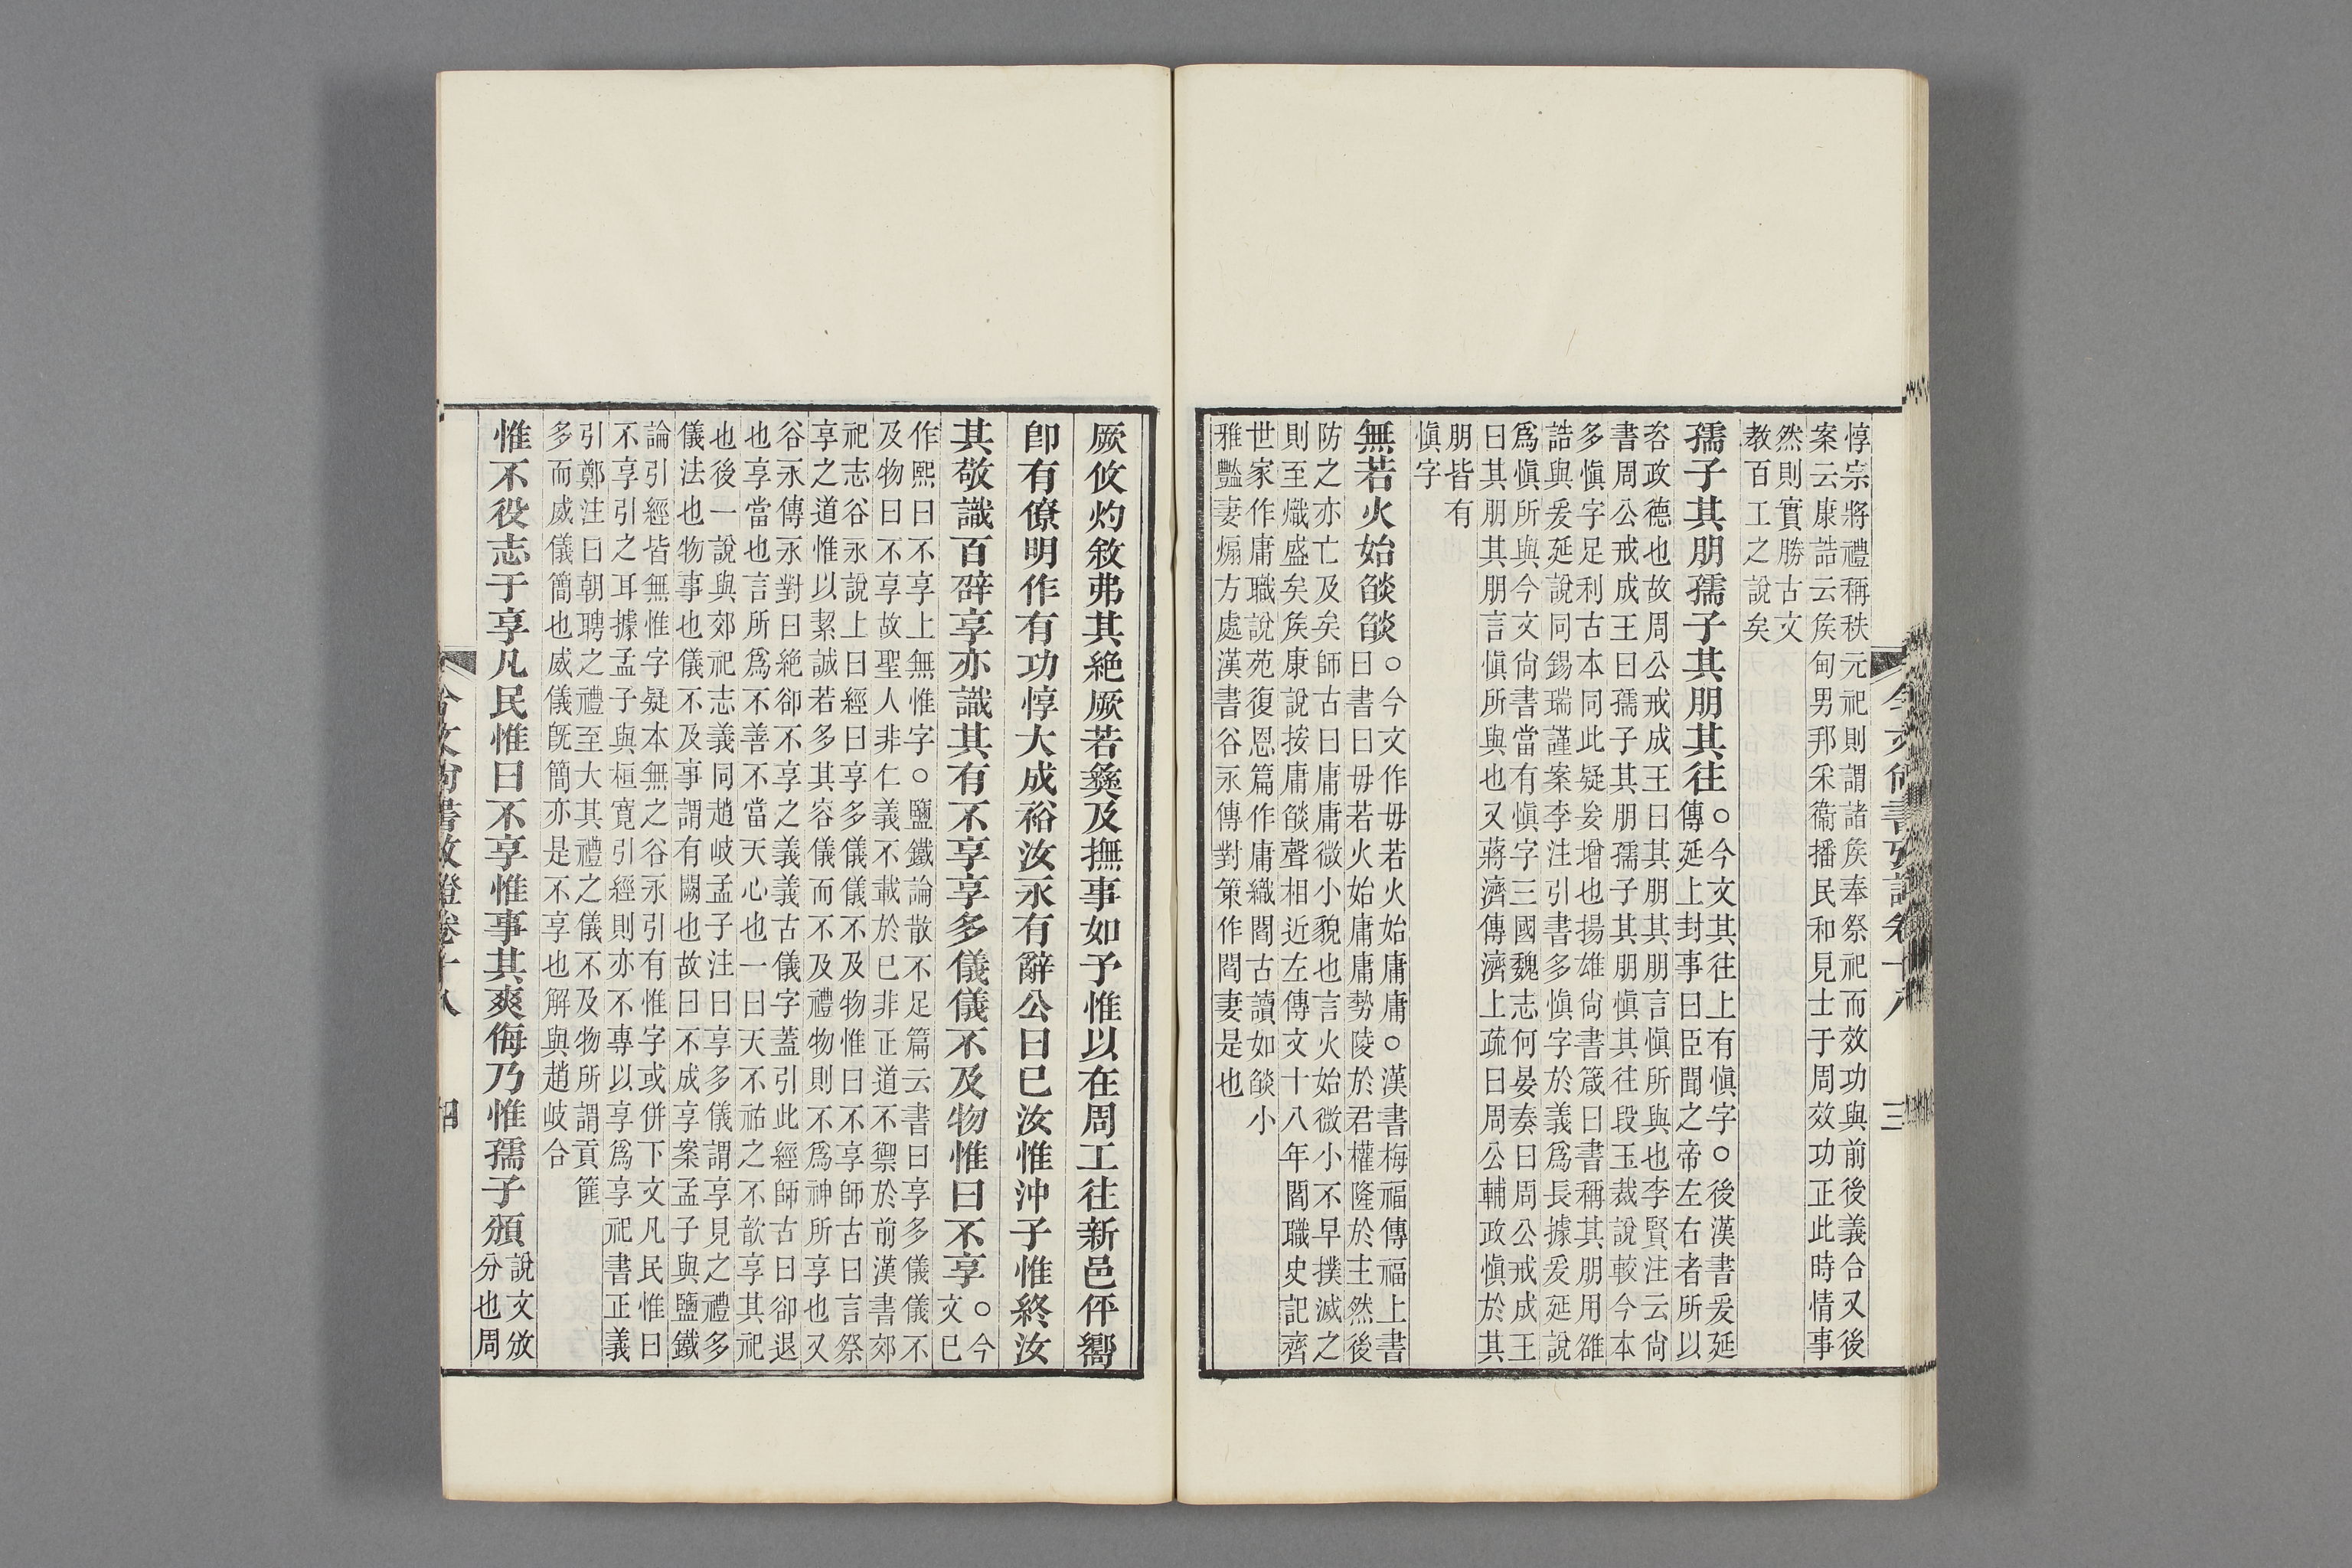 惇宗將禮稱秩元祀則謂諸矦奉祭祀而效功與前後義合又後
案云康誥云矦甸男邦采衞播民和見士于周效功正此時情事
然則實勝古文
教百工之說矣
孺子其朋孺子其朋其往
○今文其往上有愼字○後漢書爰延
傳延上封事曰臣聞之帝左右者所以
咨政德也故周公戒成王曰其朋其朋言愼所與也李賢注云尙
書周公戒成王曰孺子其朋孺子其朋愼其往段玉裁說較今本
多愼字足利古本同此疑妄增也揚雄尙書箴曰書稱其朋用雒
誥與爰延說同錫瑞謹案李注引書多愼字於義爲長據爰延說
爲愼所與今文尙書當有愼字三國魏志何晏奏曰周公戒成王
曰其朋其朋言愼所與也又蔣濟傳濟上疏曰周公輔政愼於其
朋皆有
愼字
無若火始燄燄
○今文作毋若火始庸庸○漢書梅福傳福上書
曰書曰毋若火始庸庸勢陵於君權隆於主然後
防之亦亡及矣師古曰庸庸微小貌也言火始微小不早撲滅之
則至熾盛矣矦康說按庸燄聲相近左傳文十八年閻職史記齊
世家作庸職說苑復恩篇作庸織閻古讀如燄小
雅豔妻煽方處漢書谷永傳對策作閻妻是也
今文尙書攷證卷十八
三
厥攸灼敘弗其絕厥若彝及撫事如予惟以在周工往新邑伻嚮
卽有僚明作有功惇大成裕汝永有辭公曰已汝惟沖子惟終汝
其敬識百辟享亦識其有不享享多儀儀不及物惟曰不享
○今
文已
作熙曰不享上無惟字○鹽鐵論散不足篇云書曰享多儀儀不
及物曰不享故聖人非仁義不載於己非正道不禦於前漢書郊
祀志谷永說上曰經曰享多儀儀不及物惟曰不享師古曰言祭
享之道惟以絜誠若多其容儀而不及禮物則不爲神所享也又
谷永傳永對曰絕卻不享之義義古儀字蓋引此經師古曰卻退
也享當也言所爲不善不當天心也一曰天不祐之不歆享其祀
也後一說與郊祀志義同趙岐孟子注曰享多儀謂享見之禮多
儀法也物事也儀不及事謂有闕也故曰不成享案孟子與鹽鐵
論引經皆無惟字疑本無之谷永引有惟字或併下文凡民惟曰
不享引之耳據孟子與桓寬引經則亦不專以享爲享祀書正義
引鄭注曰朝聘之禮至大其禮之儀不及物所謂貢篚
多而威儀簡也威儀旣簡亦是不享也解與趙岐合
惟不役志于享凡民惟曰不享惟事其爽侮乃惟孺子頒
說文攽
分也周
今文尙書攷證卷十八
四